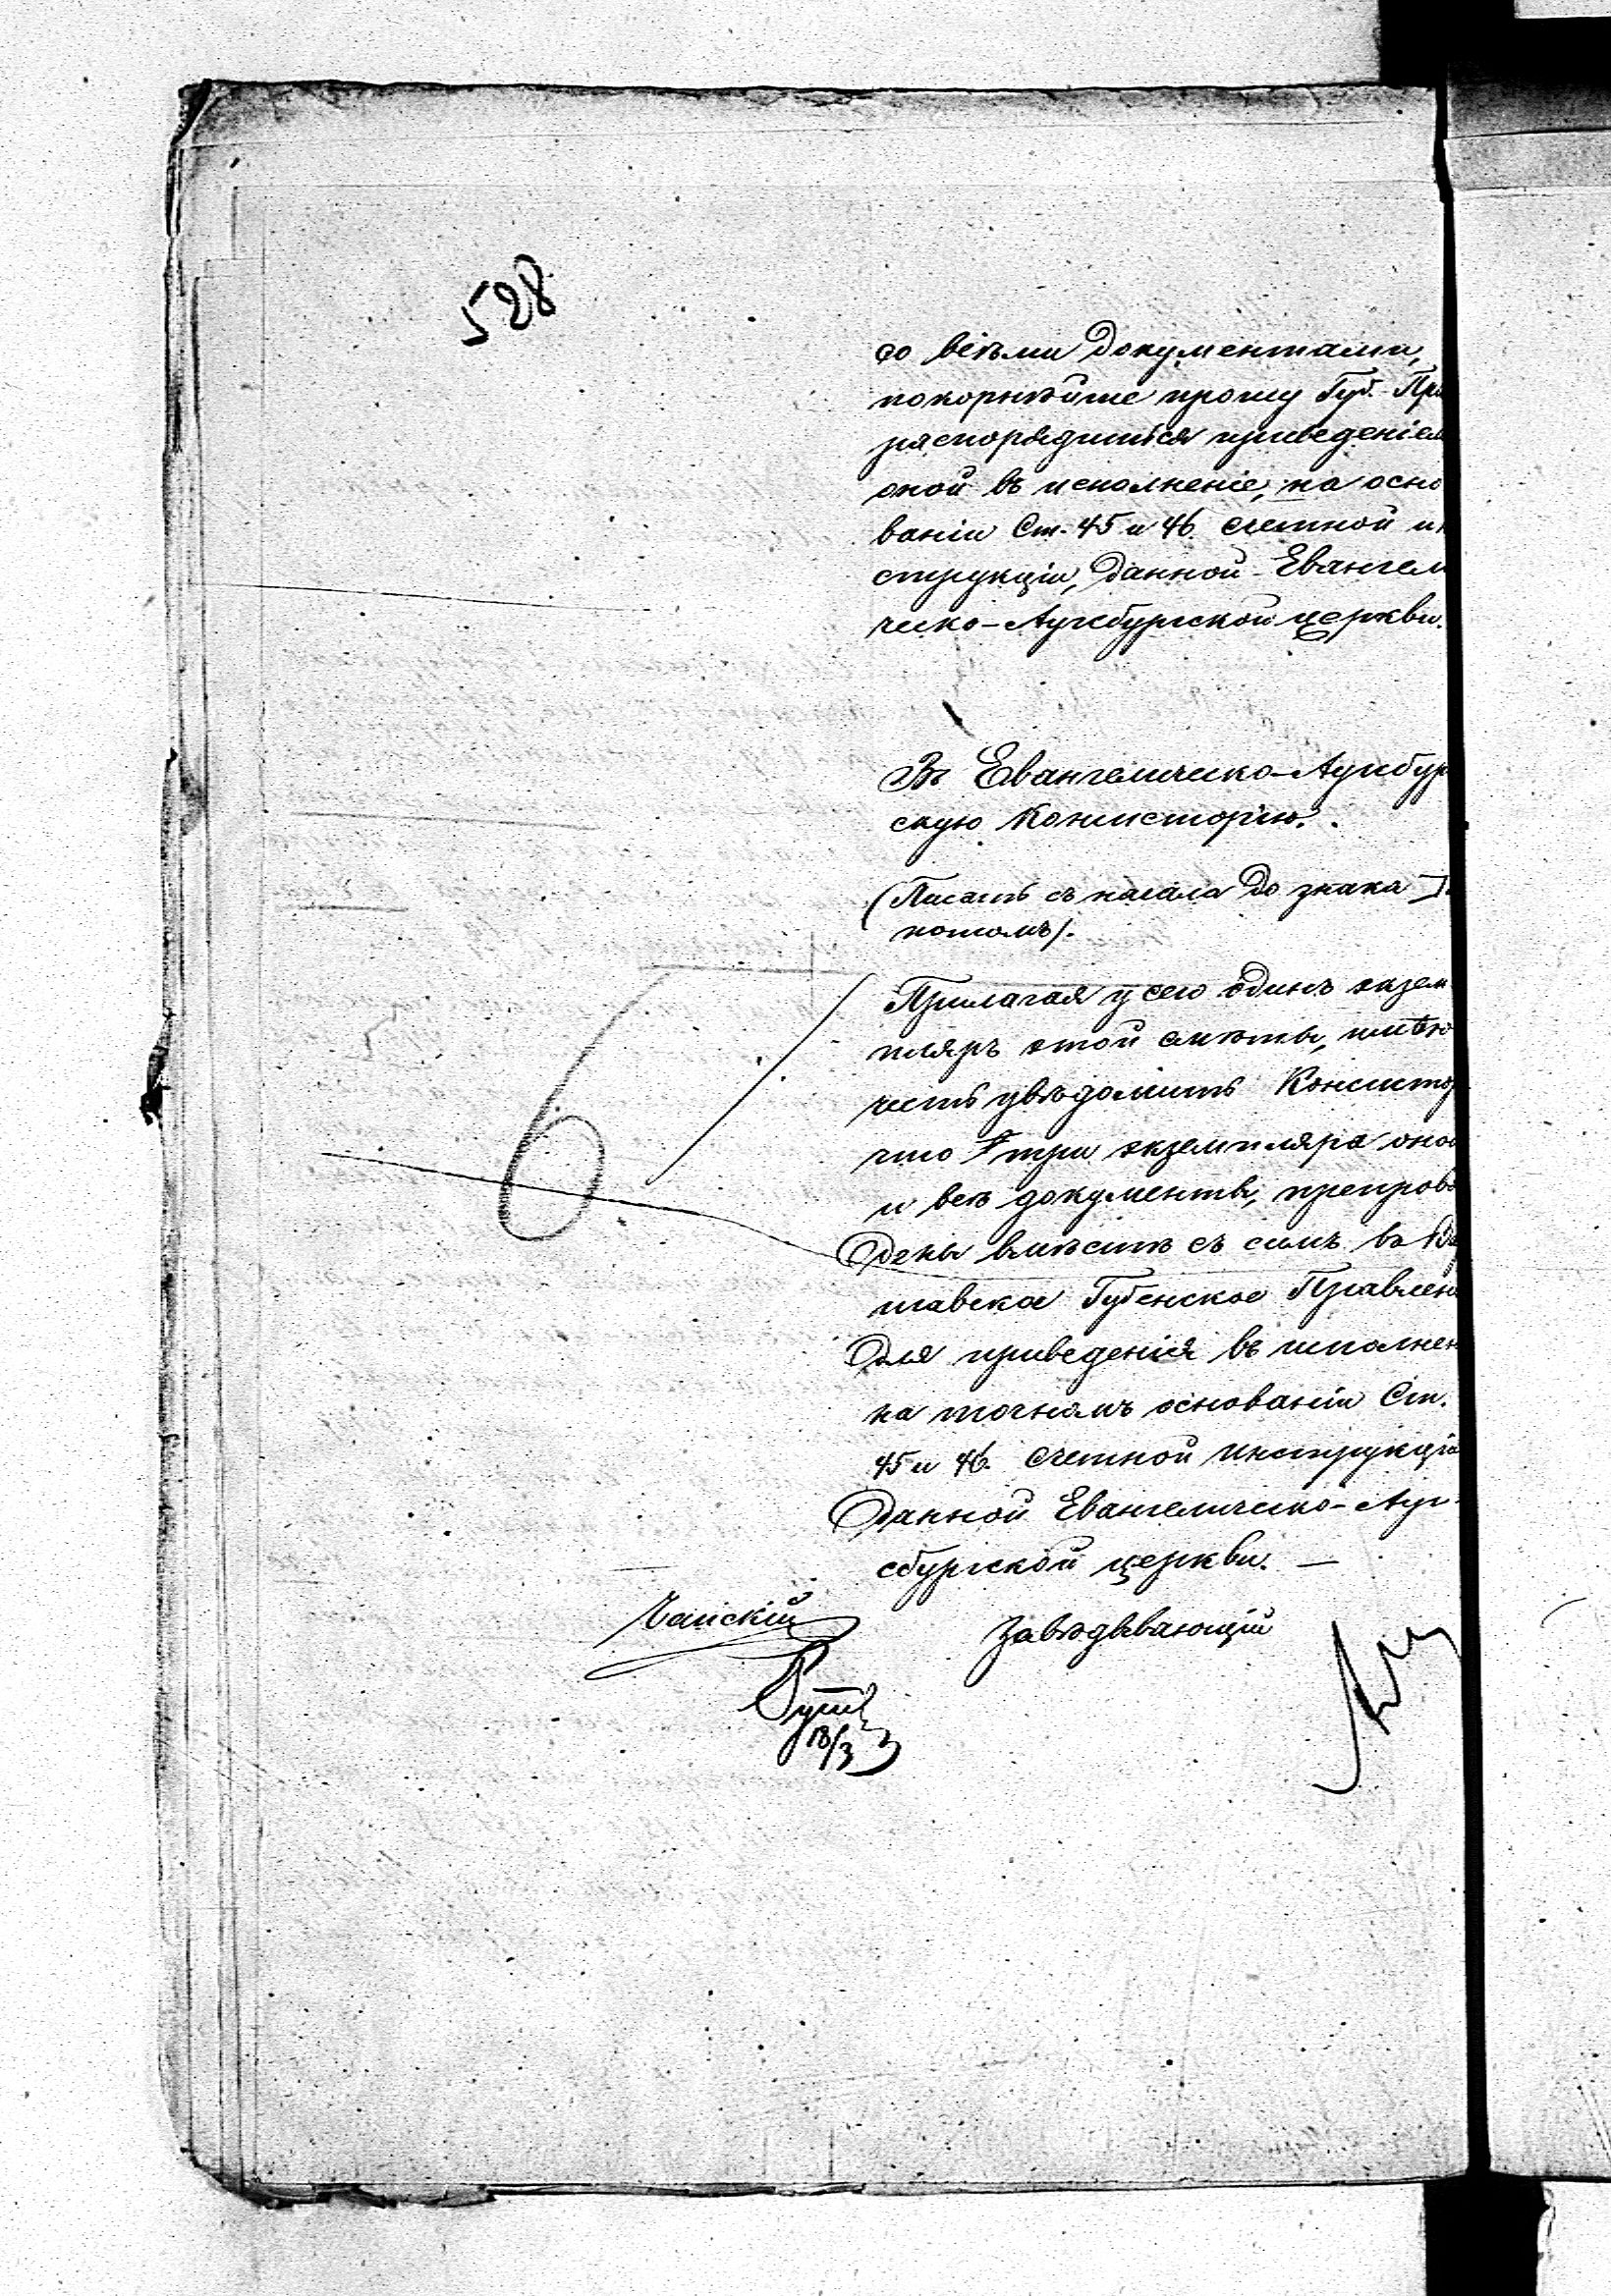 528
со всѣми документами,
покорнѣйше прошу Губ. Пра
распорядиться приведеніем
оной въ исполненіе, на осно
ваніи Ст. 45 и 46 счетной ин
струкціи, данной Евангели
ческо-Аугсбургской церкви.
Въ Евангелическо-Аугсбур
скую Консисторію.
(Писать съ начала до знака
потомъ).
Прилагая у сего одинъ экзем
пляръ этой смѣты, имѣю
честь увѣдомить Консистор
что три экземпляра оной
и всѣ документы, препрово
дены вмѣстѣ съ симъ въ Вар
шавское Губенское Правлен
для приведенія въ исполнен
на точномъ основаніи Ст.
45 и 46 счетной инструкціи
данной Евангелическо-Ауг
сбургской церкви. —
Завѣдывающій
18/3